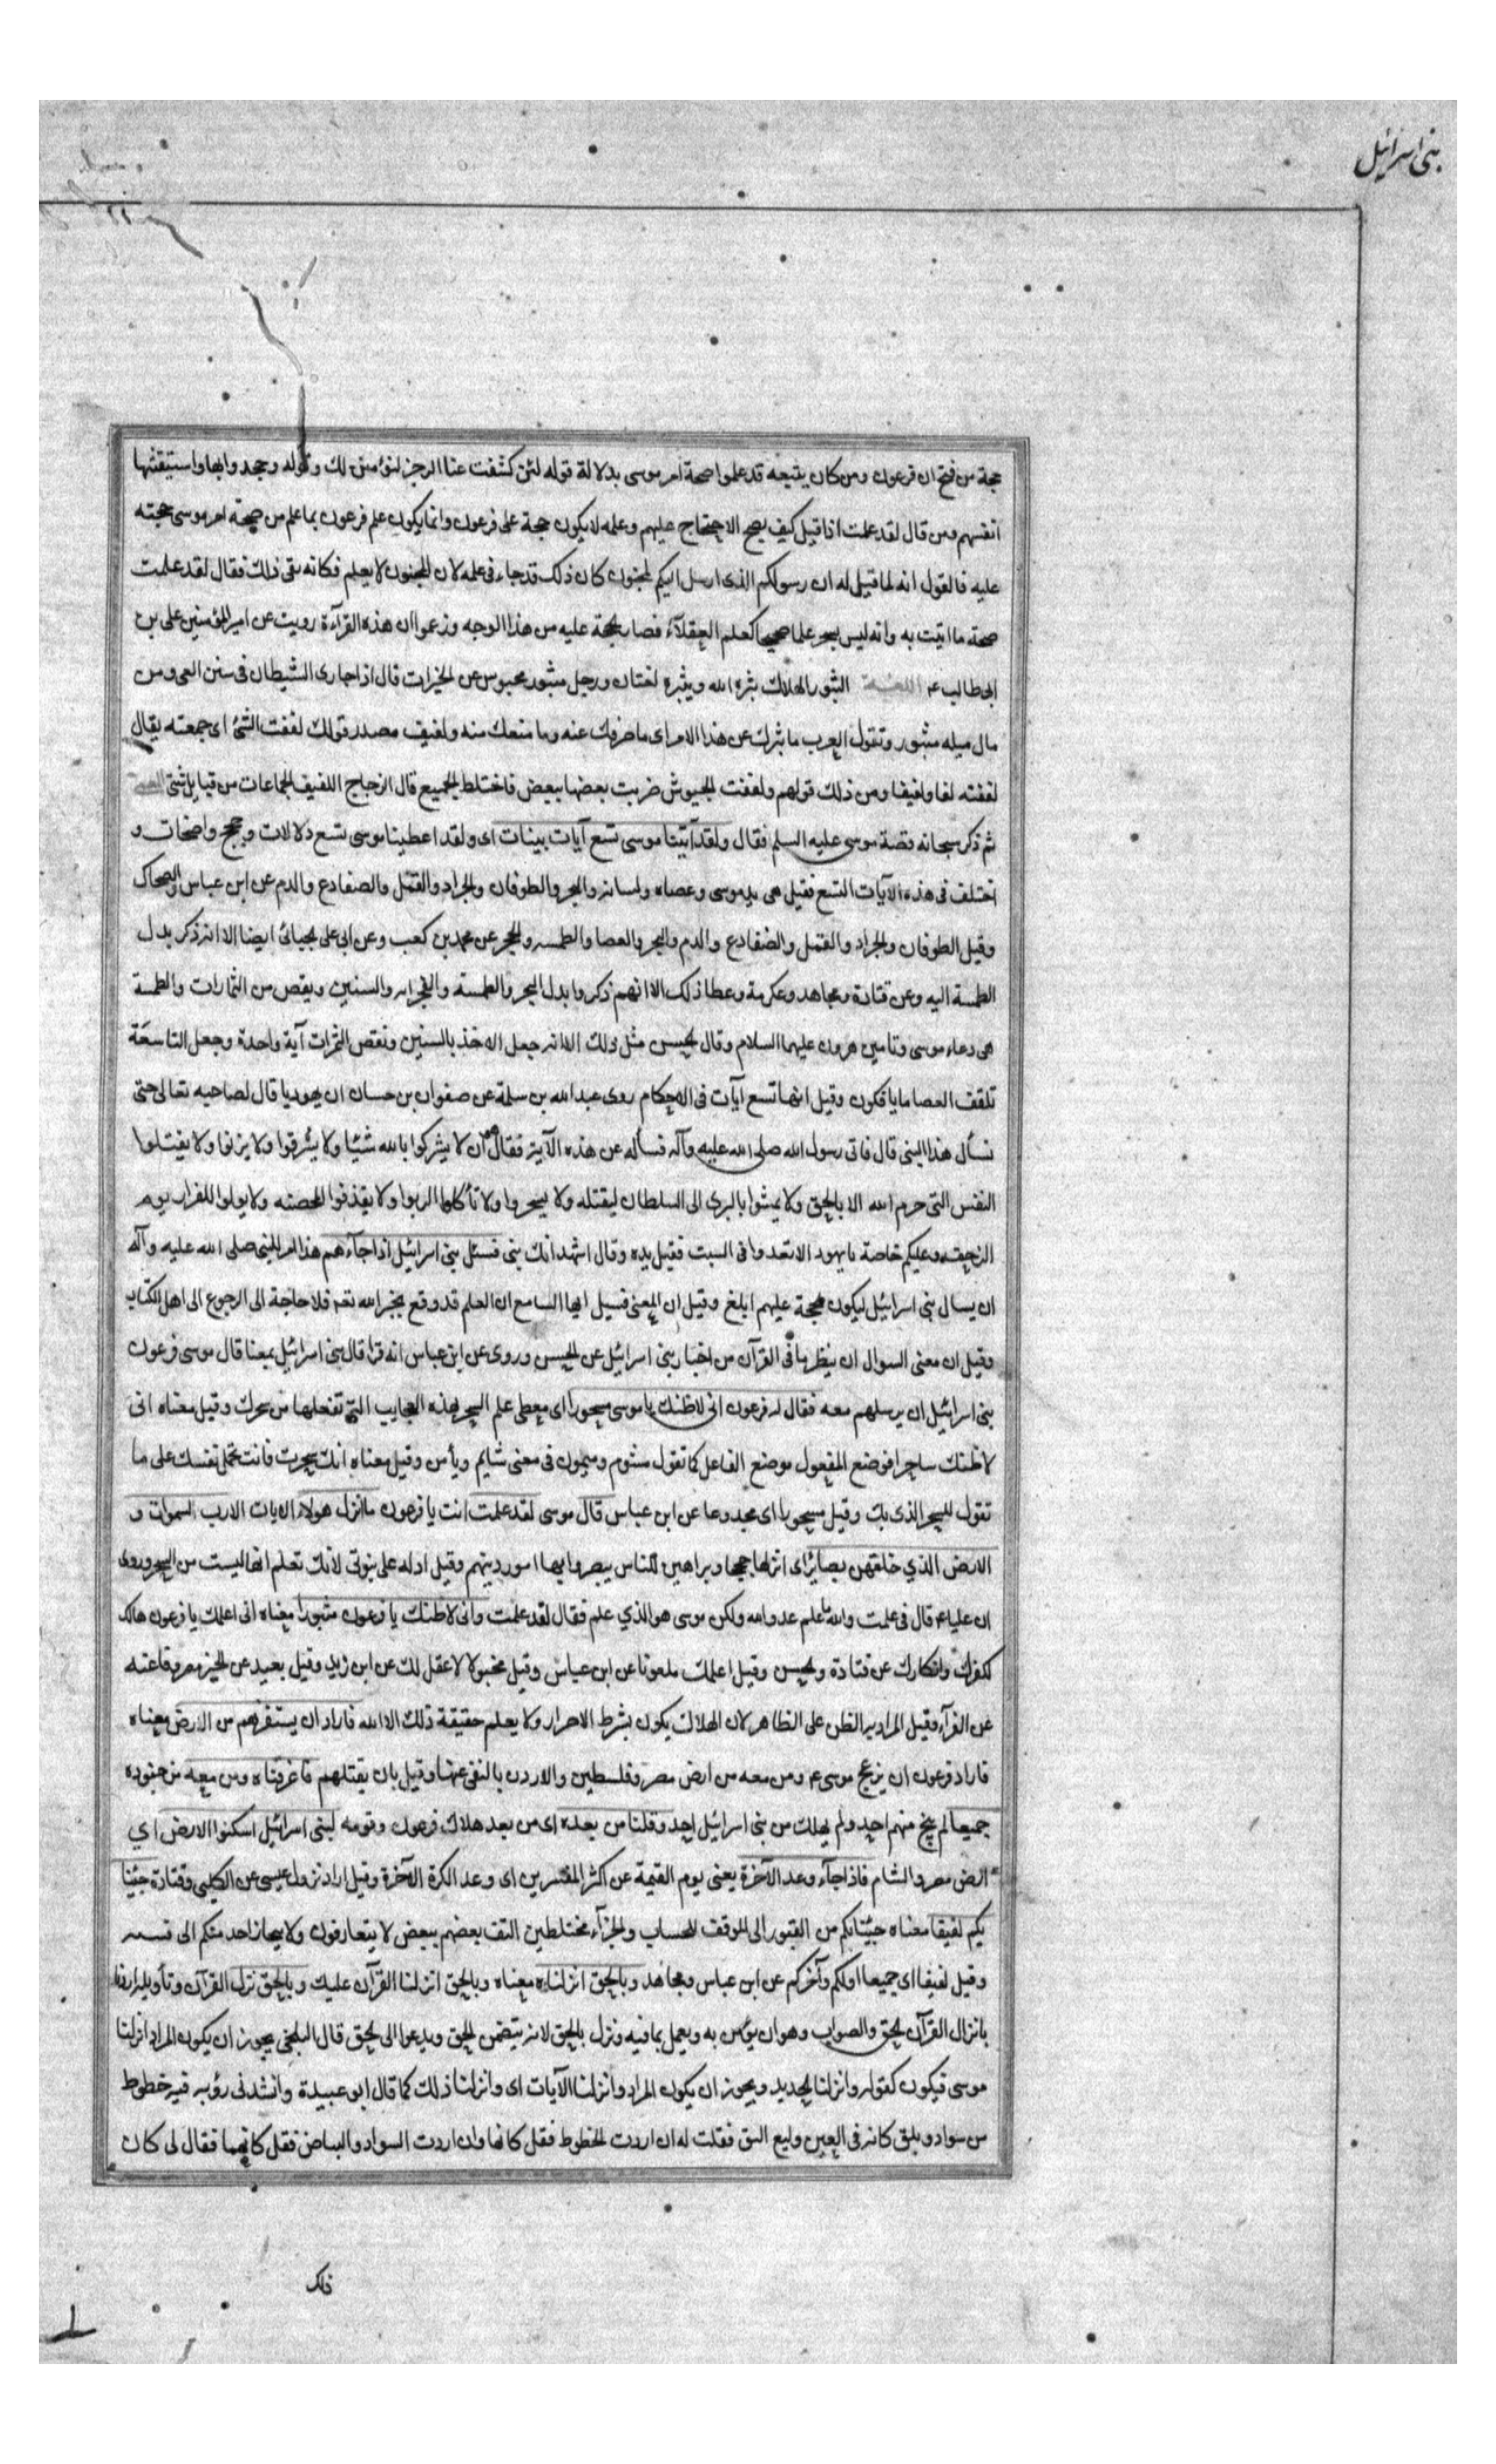 بنی اسرائیل
حجة من فتح ان فرعون ومن كان يتبعه قد علموا صحة امر موسى بدلالة قوله لئن كشفت عنا الرجز لنؤمنن لك وقوله وجحدوا بها واستيقنتها
انفسهم ومن قال لقد علمت اذا قيل كيف يصح الاحتجاج عليهم وعلمه لا يكون حجة على فرعون وانما يكون علم فرعون بما علم من صحة امر موسى حجته
عليه فالقول انه لما قيل له ان رسولكم الذى ارسل اليكم لمجنون كان ذلك قدحا فى علمه لان المجنون لا يعلم فكانه نفى ذلك فقال لقد علمت
صحة ما اتيت به وانه ليس بسحر علما صحيحا كعلم العقلآء فصار حجة عليه من هذا الوجه وزعموا ان هذه القرآءة رويت عن امير المؤمنين على بن
ابى طالب ع اللغة الثبور الهلاك ثبره الله ويثبره لغتان ورجل مثبور محبوس عن الخيرات قال اذا جارى الشيطان فى سنن الغى ومن
مال ميله مثبور وتقول العرب ما ثبرك عن هذا الامر اى ما صرفك عنه وما منعك منه ولفيف مصدر قولك لففت الشئ اى جمعته يقال
لففته لفا ولفيفا ومن ذلك قولهم ولففت الجيوش ضربت بعضها ببعض فاختلط الجميع قال الزجاج اللفيف الجماعات من قبايل شتى
ثم ذكر سبحانه قصة موسى عليه السلم فقال ولقد آتينا موسى تسع آيات بينات اى ولقد اعطينا موسى تسع دلالات وحجج واضحات و
اختلف فى هذه الآيات التسع فقيل هى يد موسى وعصاه ولسانه والبحر والطوفان والجراد والقمل والضفادع والدم عن ابن عباس والضحاك
وقيل الطوفان والجراد والقمل والضفادع والدم والبحر والعصا والطمسه والحجر عن محمد بن كعب وعن ابى على الجبائى ايضا الا انه ذكر بدل
الطمسة اليه وعن قتادة ومجاهد وعكرمة وعطا ذلك الا انهم ذكروا بدل البحر والطمسة والحجر اليد والسنين ونقص من الثمارات والطمسة
هى دعاء موسى وتامين هرون عليهما السلام وقال الحسن مثل ذلك الا انه جعل الاخذ بالسنين ونقص الثمرات آية واحدة وجعل التاسعة
تلقف العصا ما يافكون وقيل انها تسع آيات فى الاحكام روى عبد الله بن سلمة عن صفوان بن حسان ان يهوديا قال لصاحبه تعالى حتى
نسأل هذا النبى قال فاتى رسول الله صلى الله عليه وآله فسأله عن هذه الآية فقال هو ان لا يشركوا بالله شيئا ولا يسرقوا ولا يزنوا ولا يقتلوا
النفس التى حرم الله الا بالحق ولا يمشوا بالبرى الى السلطان ليقتله ولا يسحروا ولا تأكلوا الربوا ولا يقذفوا المحصنه ولا يولوا للفرار يوم
الزحف وعليكم خاصة يا يهود الا تعدوا فى السبت فقبل يده وقال اشهد انك نبى فسئل بنى اسرائيل اذا جآءهم هذا امر للنبى صلى الله عليه وآله
ان يسال بنى اسرائيل ليكون الحجة عليهم ابلغ وقيل ان المعنى فسيل ايها السامع ان العلم قد وقع بخبر الله تعم فلا حاجة الى الرجوع الى اهل الكتاب
وقيل ان معنى السوال ان ينظر ما فى القرآن من اخبار بنى اسرائيل عن الحسن وروى عن ابن عباس انه قرا قال بنى اسرائيل بمعنا قال موسى فرعون
بنى اسرائيل ان يرسلهم معه فقال له فرعون انى لاظنك يا موسى مسحورا اى معطى علم السحر بهذه العجايب التى تفعلها من سحرك وقيل معناه انى
لاظنك ساحرا فوضع المفعول موضع الفاعل كما تقول مشوم وميمون فى معنى شايم ويأمن وقيل معناه انك سحرت فانت تحمل نفسك على ما
تقول للسحر الذى بك وقيل مسحورا اى مخدوعا عن ابن عباس قال موسى لقد علمت انت يا فرعون ما انزل هولاء الايات الا رب السموات و
الارض الذي خلقهن بصائر اى انزلها حججا وبراهين للناس يبصروا بها امور دينهم وقيل ادله على نبوتى لانك تعلم انها ليست من السحر وروى
ان عليا ع قال فى علمت والله ما علم عدو الله ولكن موسى هو الذي علم فقال لقد علمت وانى لاظنك يا فرعون مثبورا معناه انى اعلمك يا فرعون هالك
لكفرك وانكارك عن قتادة والحسن وقيل اعلمك ملعونا عن ابن عباس وقيل مخبولا لا عقل لك عن ابن زيد وقيل بعيد عن الخير مصروفا عنه
عن الفرآء وقيل المراد به الظن على الظاهر لان الهلاك يكون بشرط الاصرار ولا يعلم حقيقة ذلك الا الله فاراد ان يستفزهم من الارض معناه
فاراد فرعون ان يزعج موسى ع ومن معه من ارض مصر وفلسطين والاردن بالنفى عنها وقيل بان يقتلهم فاغرقناه ومن معه من جنوده
جميعا لم ينج منهم احد ولم يهلك من بنى اسرائيل احد وقلنا من بعده اى من بعد هلاك فرعون وقومه لبنى اسرائيل اسكنوا الارض اي
ارض مصر والشام فاذا جآء وعد الآخرة يعنى يوم القيمة عن اكثر المفسرين اى وعد الكرة الآخرة وقيل اراد نزول عيسى عن الكلبى وقتادة جئنا
بكم لفيفا معناه جئنابكم من القبور الى الموقف للحساب والجزآء مختلطين التفت بعضهم ببعض لا يتعارفون ولا ينحاز احد منكم الى
وقيل لفيفا اى جميعا اولكم وآخركم عن ابن عباس ومجاهد وبالحق انزلناه معناه وبالحق انزلنا القرآن عليك وبالحق نزل القرآن وتأويله اردنا
بانزال القرآن الحق والصواب وهو ان يؤمن به ويعمل بما فيه ونزل بالحق لانه يتضمن الحق ويدعوا الى الحق قال البلخى يجوز ان يكون المراد انزلنا
موسى فيكون كقوله وانزلنا الحديد ويجوز ان يكون المراد وانزلنا الآيات اى وانزلنا ذلك كما قال ابو عبيدة وانشدنى رؤبه فيه خطوط
من سواد وبلق كانه فى العين وليع البق فقلت له ان اردت الخطوط فقل كانها وان اردت السواد والبياض فقل كانهما فقال لى كان
ذلك